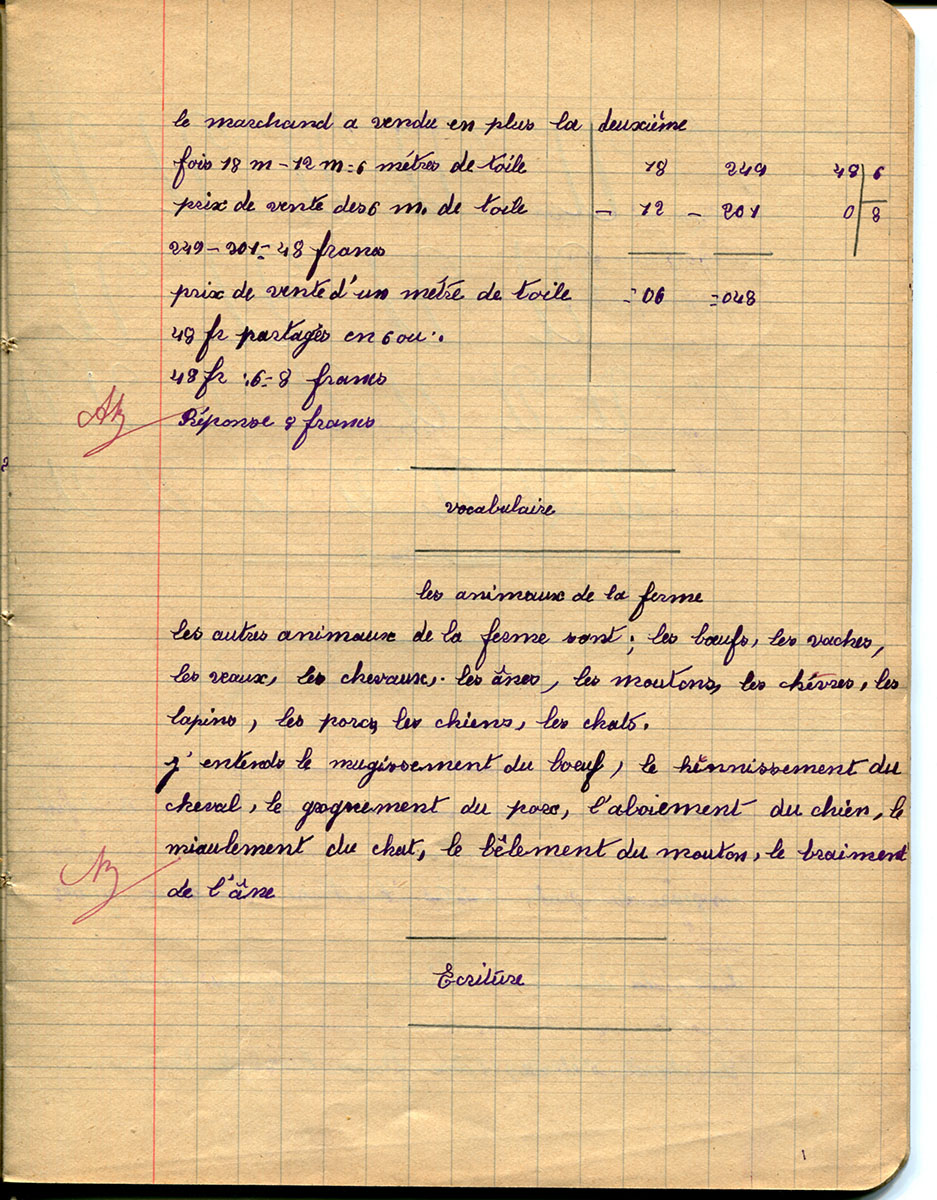 le marchand a vendu en plus la deuxième
fois 18 m - 12 m = 6 métres de toile
18 249 48 6
prix de vente des 6 m. de toile
- 12 - 201 0 8
249 - 201 = 48 francs
prix de vente d'un métre de toile
= 06 = 048
48 fr partagés en 6 ou :
48 fr : 6 = 8 francs
Réponse 8 francs
vocabulaire
les animaux de la ferme
les autres animaux de la ferme sont ; les bœufs, les vaches,
les veaux, les chevaux, les ânes, les moutons, les chévres, les
lapins, les porcs, les chiens, les chats.
j'entends le mugissement du bœuf, le hênnissement du
cheval, le grognement du porc, l'aboiement du chien, le
miaulement du chat, le bêlement du mouton, le braiment
de l'âne
Ecriture